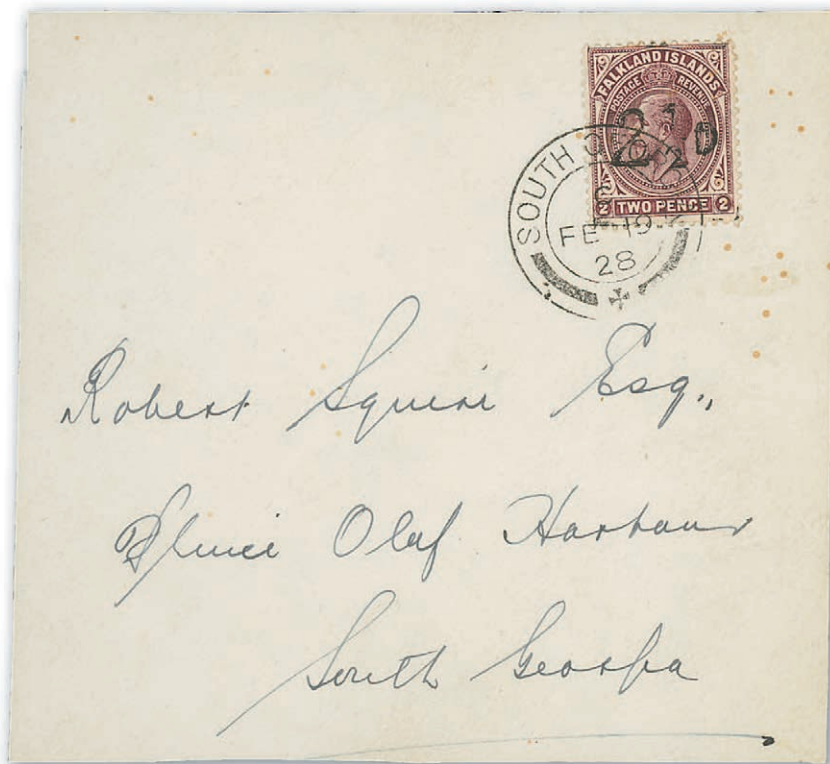 FALKLAND ISLANDS
POSTAGE REVENUE
2½D
2 TWO PENCE 2
SOUTH GEORGIA
FE 19
28
Robert Squire Esq.,
Prince Olaf Harbour
South Georgia